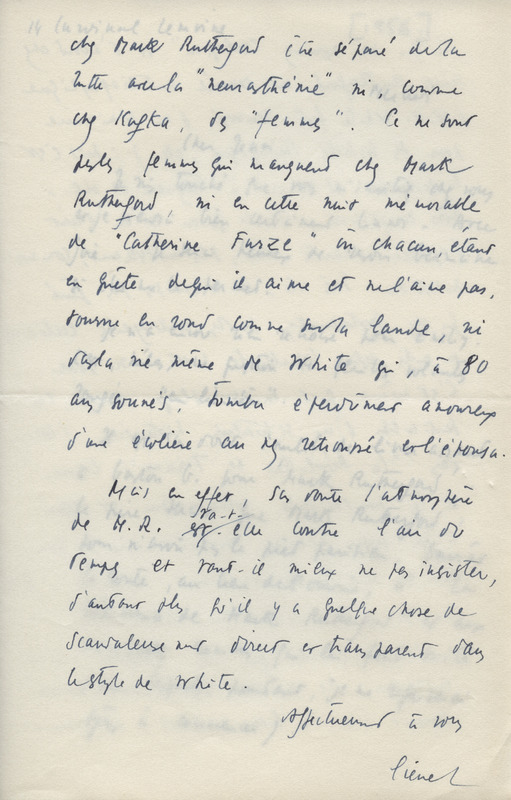 chez Mark Rutherford être séparé de la
lutte avec la "neurasthénie" ni, comme
chez Kafka, des "femmes". Ce ne sont
pas les femmes qui manquent chez Mark
Rutherford, ni en cette nuit mémorable
de "Catherine Furze" où chacun, étant
en quête de qui il aime et ne l'aime pas,
tourne en rond comme sur la lande, ni
dans la vie même de White qui, à 80
ans sonnés, tomba éperdûment amoureux
d'une écolière au nez retroussé et l'épousa.
Mais en effet, sans doute l'atmosphère
de M.R. va-t-elle contre l'air du
temps et vaut-il mieux ne pas insister,
d'autant plus qu'il y a quelque chose de
scandaleusement direct et transparent dans
le style de White.
Affectueusement à vous